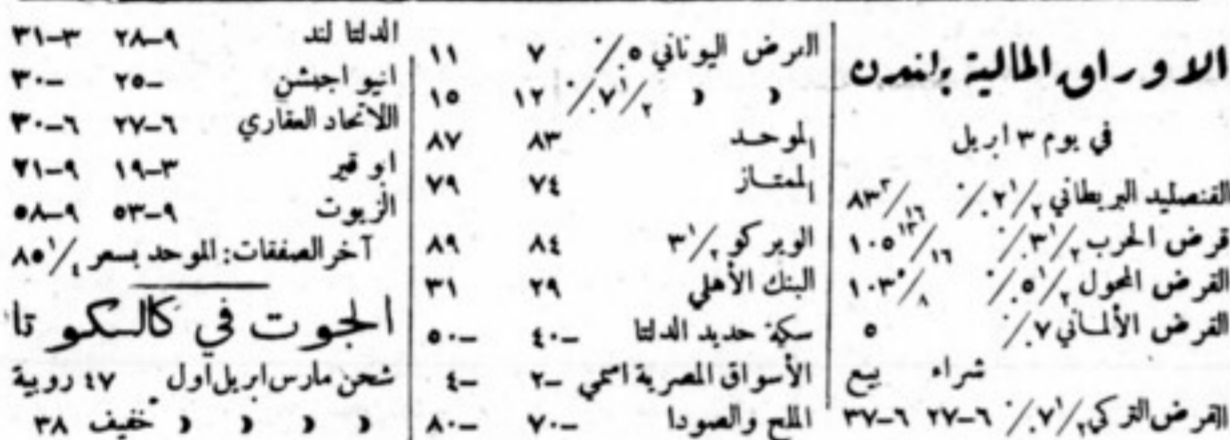 الاوراق المالية بلندن
في يوم ٣ ابريل
القنصليد البريطاني ٢ ١/٢ ٪ ٨٣ ٣/١٦
قرض الحرب ٣ ١/٢ ٪ ١٠٥ ١٣/١٦
القرض المحول ٥ ١/٢ ٪ ١٠٣ ٥/٨
القرض الألماني ٧ ٪ ٥
شراء بيع
القرض التركي ٧ ١/٢ ٪ ٦–٢٧ ٦–٣٧
القرض اليوناني ٥ ٪ ٧ ١١
» » ٧ ١/٢ ٪ ١٢ ١٥
الموحد ٨٣ ٨٧
الممتاز ٧٤ ٧٩
الويركو ٣ ١/٢ ٨٤ ٨٩
البنك الأهلي ٢٩ ٣١
سكة حديد الدلتا –٤٠ –٥٠
الأسواق المصرية اسمي –٢ –٤
الملح والصودا –٧٠ –٨٠
الدلتا لند ٩–٢٨ ٣–٣١
انيو اجبشن –٢٥ –٣٠
اللاتحاد العقاري ٦–٢٧ ٦–٣٠
ابو قير ٣–١٩ ٩–٢١
الزيوت ٩–٥٣ ٩–٥٨
آخر الصفقات: الموحد بسعر ٨٥ ١/٤
الجوت في كالسكوتا
شحن مارس ابريل أول ٤٧ روبية
» » » » خفيف ٣٨